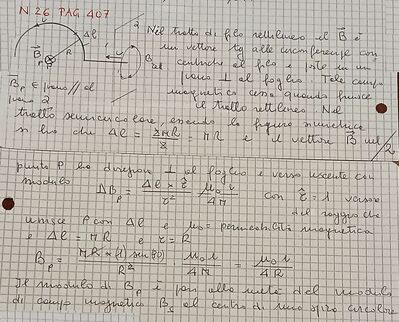 N 26 PAG 407
Nel tratto di filo rettilineo il B è
un vettore tg alle circonferenze con
centro al filo e poste in un
piano ⊥ al foglio. Tale campo
magnetico cessa quando finisce
il tratto rettilineo. Nel
tratto semicircolare, essendo la figura simmetrica
si ha che Δl = 2πR/2 = πR e il vettore B nel
punto P ha direzione ⊥ al foglio e verso uscente con
modulo
ΔB_P = Δl × r̂ / r² μ₀ i / 4π con r̂ = 1 versore
del raggio che
unisce P con Δl e μ₀ = permeabilità magnetica
e Δl = πR e r = R
B_P = πR × (1) sin 90 / R² μ₀ i / 4π = μ₀ i / 4R
Il modulo di B_P è pari alla metà del modulo
di campo magnetico B_c al centro di una spira circolare
Δl
R
B_P
P
i
B
B_P ∈ piano // al
piano 2
2